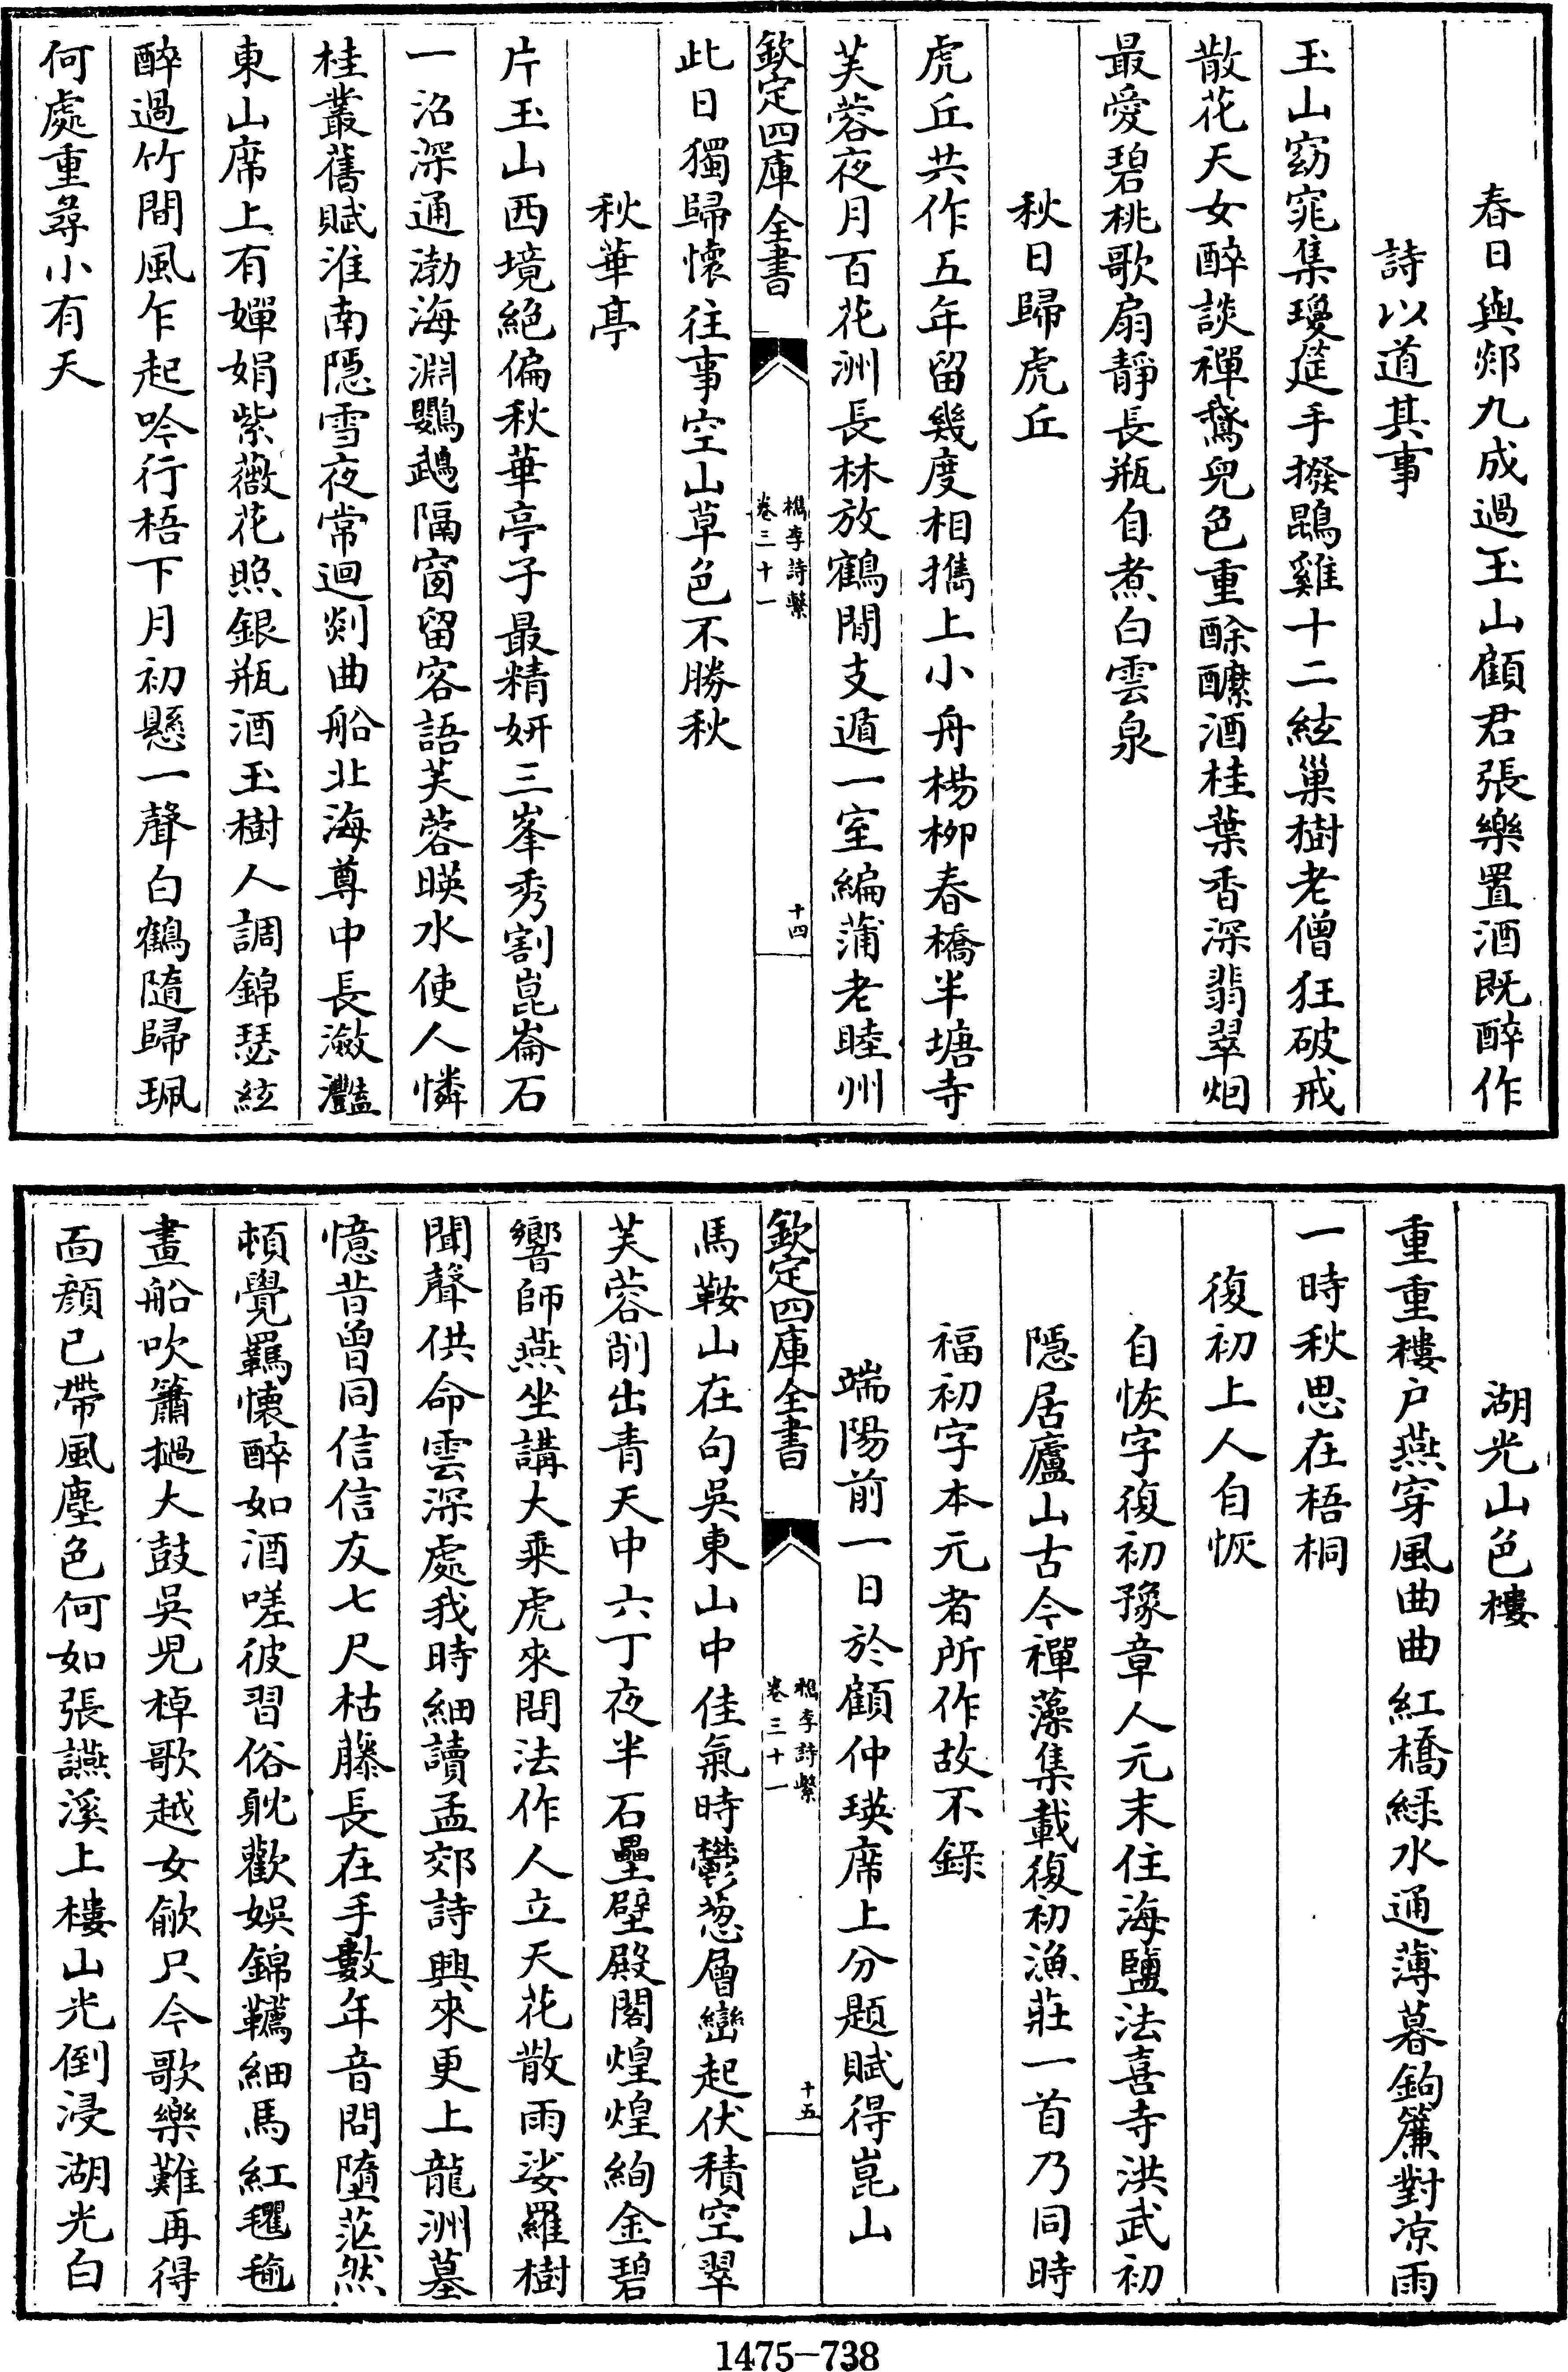 春日與郯九成過玉山顧君張樂置酒既醉作
詩以道其事
玉山窈窕集瓊莚手撥鵾雞十二絃巢樹老僧狂破戒
散花天女醉談禪鵞兒色重酴醿酒桂葉香深翡翠烟
最愛碧桃歌扇靜長瓶自煮白雲泉
秋日歸虎丘
虎丘共作五年留幾度相擕上小舟楊柳春橋半塘寺
芙蓉夜月百花洲長林放鶴閒支遁一室編蒲老睦州
欽定四庫全書
檇李詩繫
卷三十一
十四
此日獨歸懷往事空山草色不勝秋
秋華亭
片玉山西境絕偏秋華亭子最精妍三峯秀割崑崙石
一沼深通渤海淵鸚鵡隔窗留客語芙蓉暎水使人憐
桂叢舊賦淮南隱雪夜常迴剡曲船北海尊中長瀲灩
東山席上有嬋娟紫薇花照銀瓶酒玉樹人調錦瑟絃
醉過竹間風乍起吟行梧下月初懸一聲白鶴隨歸珮
何處重尋小有天
湖光山色樓
重重樓户燕穿風曲曲紅橋緑水通薄暮鉤簾對凉雨
一時秋思在梧桐
復初上人自恢
自恢字復初豫章人元末住海鹽法喜寺洪武初
隱居廬山古今禪藻集載復初漁莊一首乃同時
福初字本元者所作故不錄
端陽前一日於顧仲瑛席上分題賦得崑山
欽定四庫全書
檇李詩繫
卷三十一
十五
馬鞍山在句吳東山中佳氣時鬱葱層巒起伏積空翠
芙蓉削出青天中六丁夜半石壘壁殿閣煌煌絢金碧
響師燕坐講大乘虎來問法作人立天花散雨娑羅樹
聞聲供命雲深處我時細讀孟郊詩興來更上龍洲墓
憶昔曾同信信友七尺枯藤長在手數年音問墮茫然
頓覺羈懷醉如酒嗟彼習俗躭歡娛錦韉細馬紅氍毹
畫船吹簫撾大鼓吳兒棹歌越女歈只今歌樂難再得
面顔已帶風塵色何如張讌溪上樓山光倒浸湖光白
1475-738